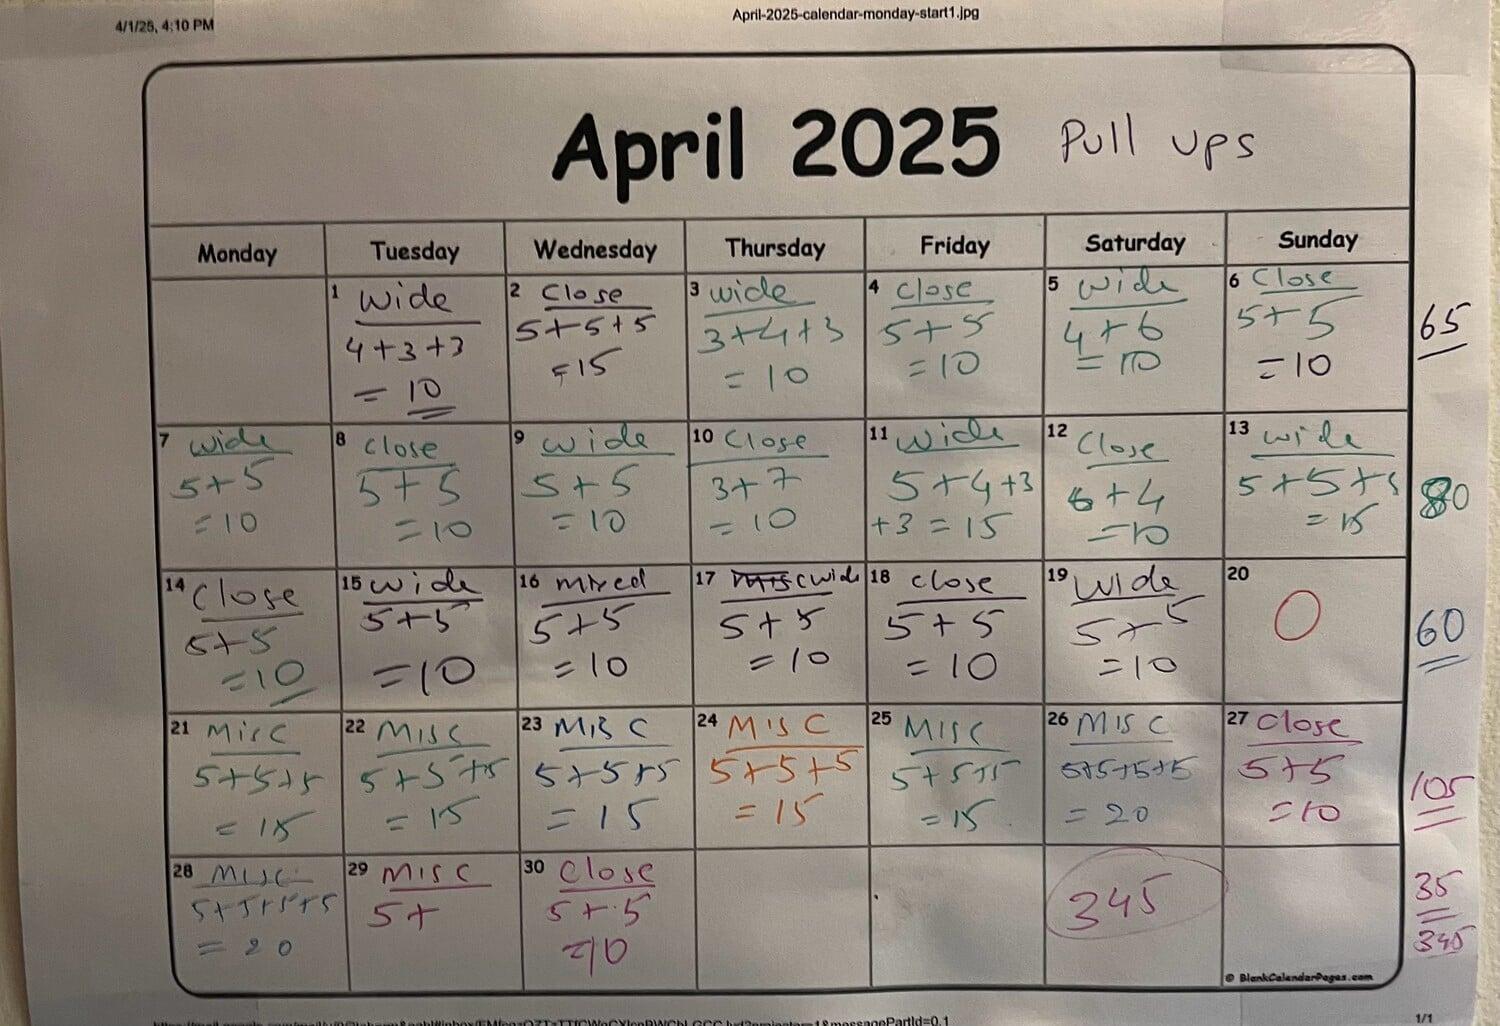 4/1/25, 4:10 PM
April-2025-calendar-monday-start1.jpg
April 2025 Pull ups
Monday Tuesday Wednesday Thursday Friday Saturday Sunday
1 Wide
4+3+3
= 10
2 Close
5+5+5
=15
3 wide
3+4+3
= 10
4 close
5+5
= 10
5 Wide
4+6
= 10
6 Close
5+5
= 10
65
7 wide
5+5
= 10
8 close
5+5
= 10
9 wide
5+5
= 10
10 Close
3+7
= 10
11 Wide
5+4+3
+3 = 15
12 Close
6+4
= 10
13 wide
5+5+5
= 15
80
14 Close
5+5
= 10
15 wide
5+5
= 10
16 mixed
5+5
= 10
17 wide
5+5
= 10
18 close
5+5
= 10
19 Wide
5+5
= 10
20
0
60
21 Misc
5+5+5
= 15
22 Misc
5+5+5
= 15
23 Misc
5+5+5
= 15
24 MISC
5+5+5
= 15
25 MISC
5+5+5
= 15
26 MISC
5+5+5+5
= 20
27 Close
5+5
= 10
105
28 Misc
5+5+5+5
= 20
29 MISC
5+
30 Close
5+5
= 10
345
35
345
© BlankCalendarPages.com
messagePartId=0.1
1/1